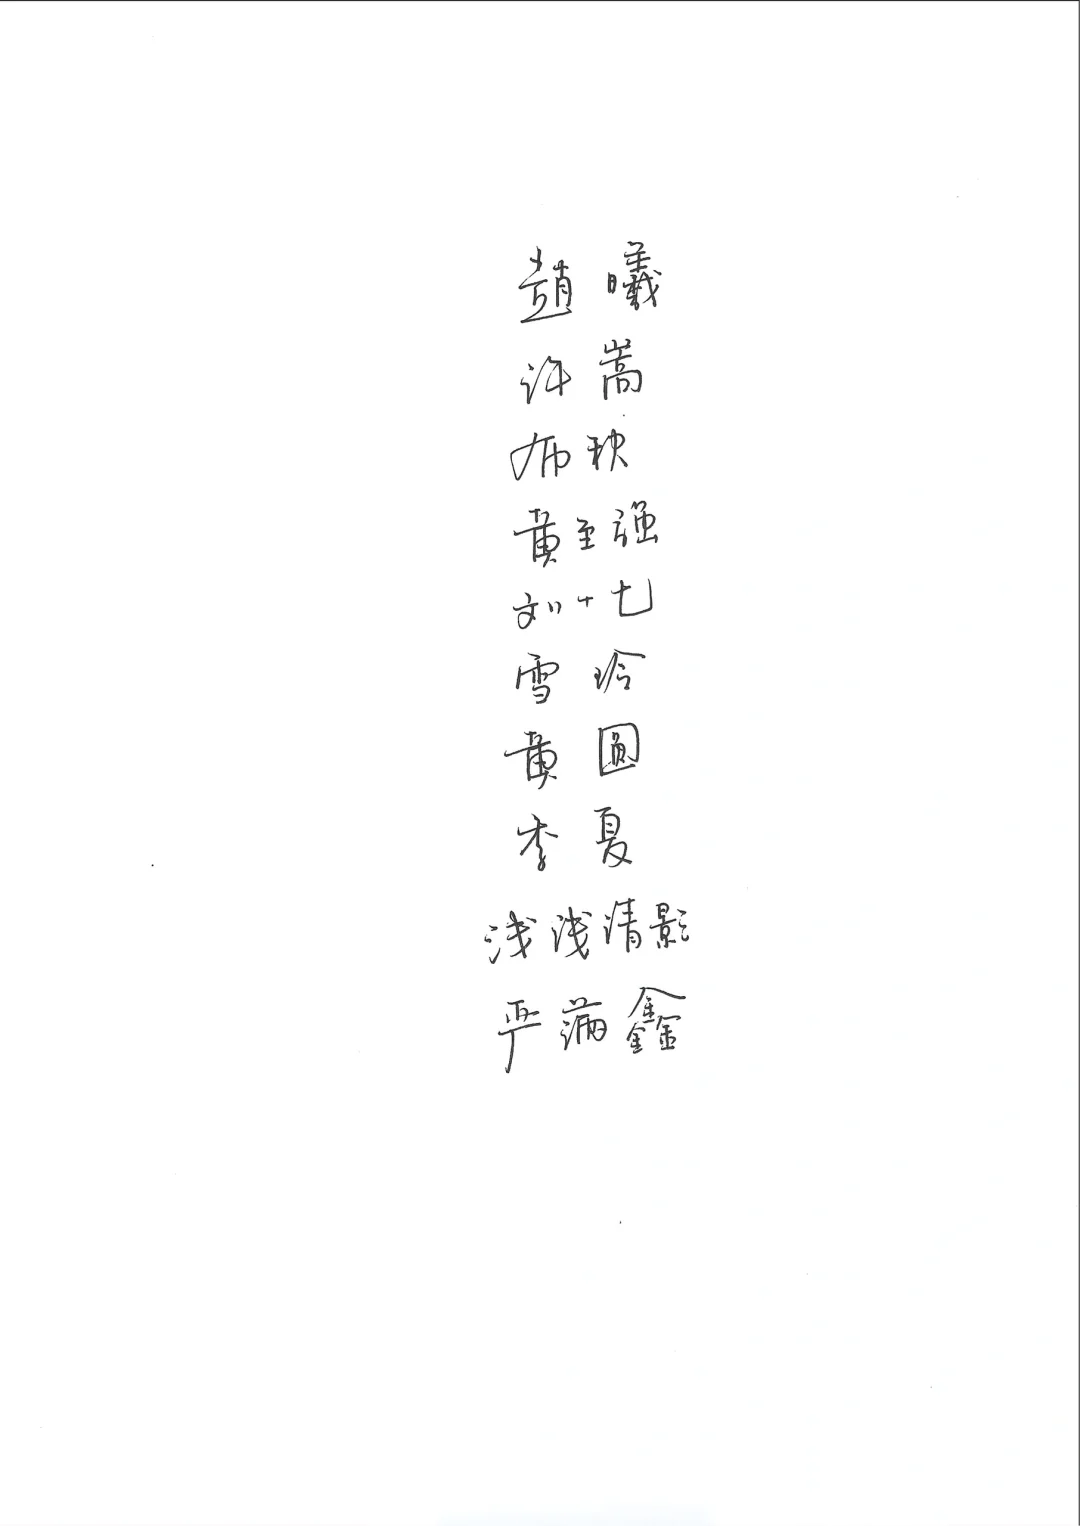 趙曦
许嵩
布秋
黄至强
刘十七
雪玲
黄圆
李夏
浅浅清影
严满鑫